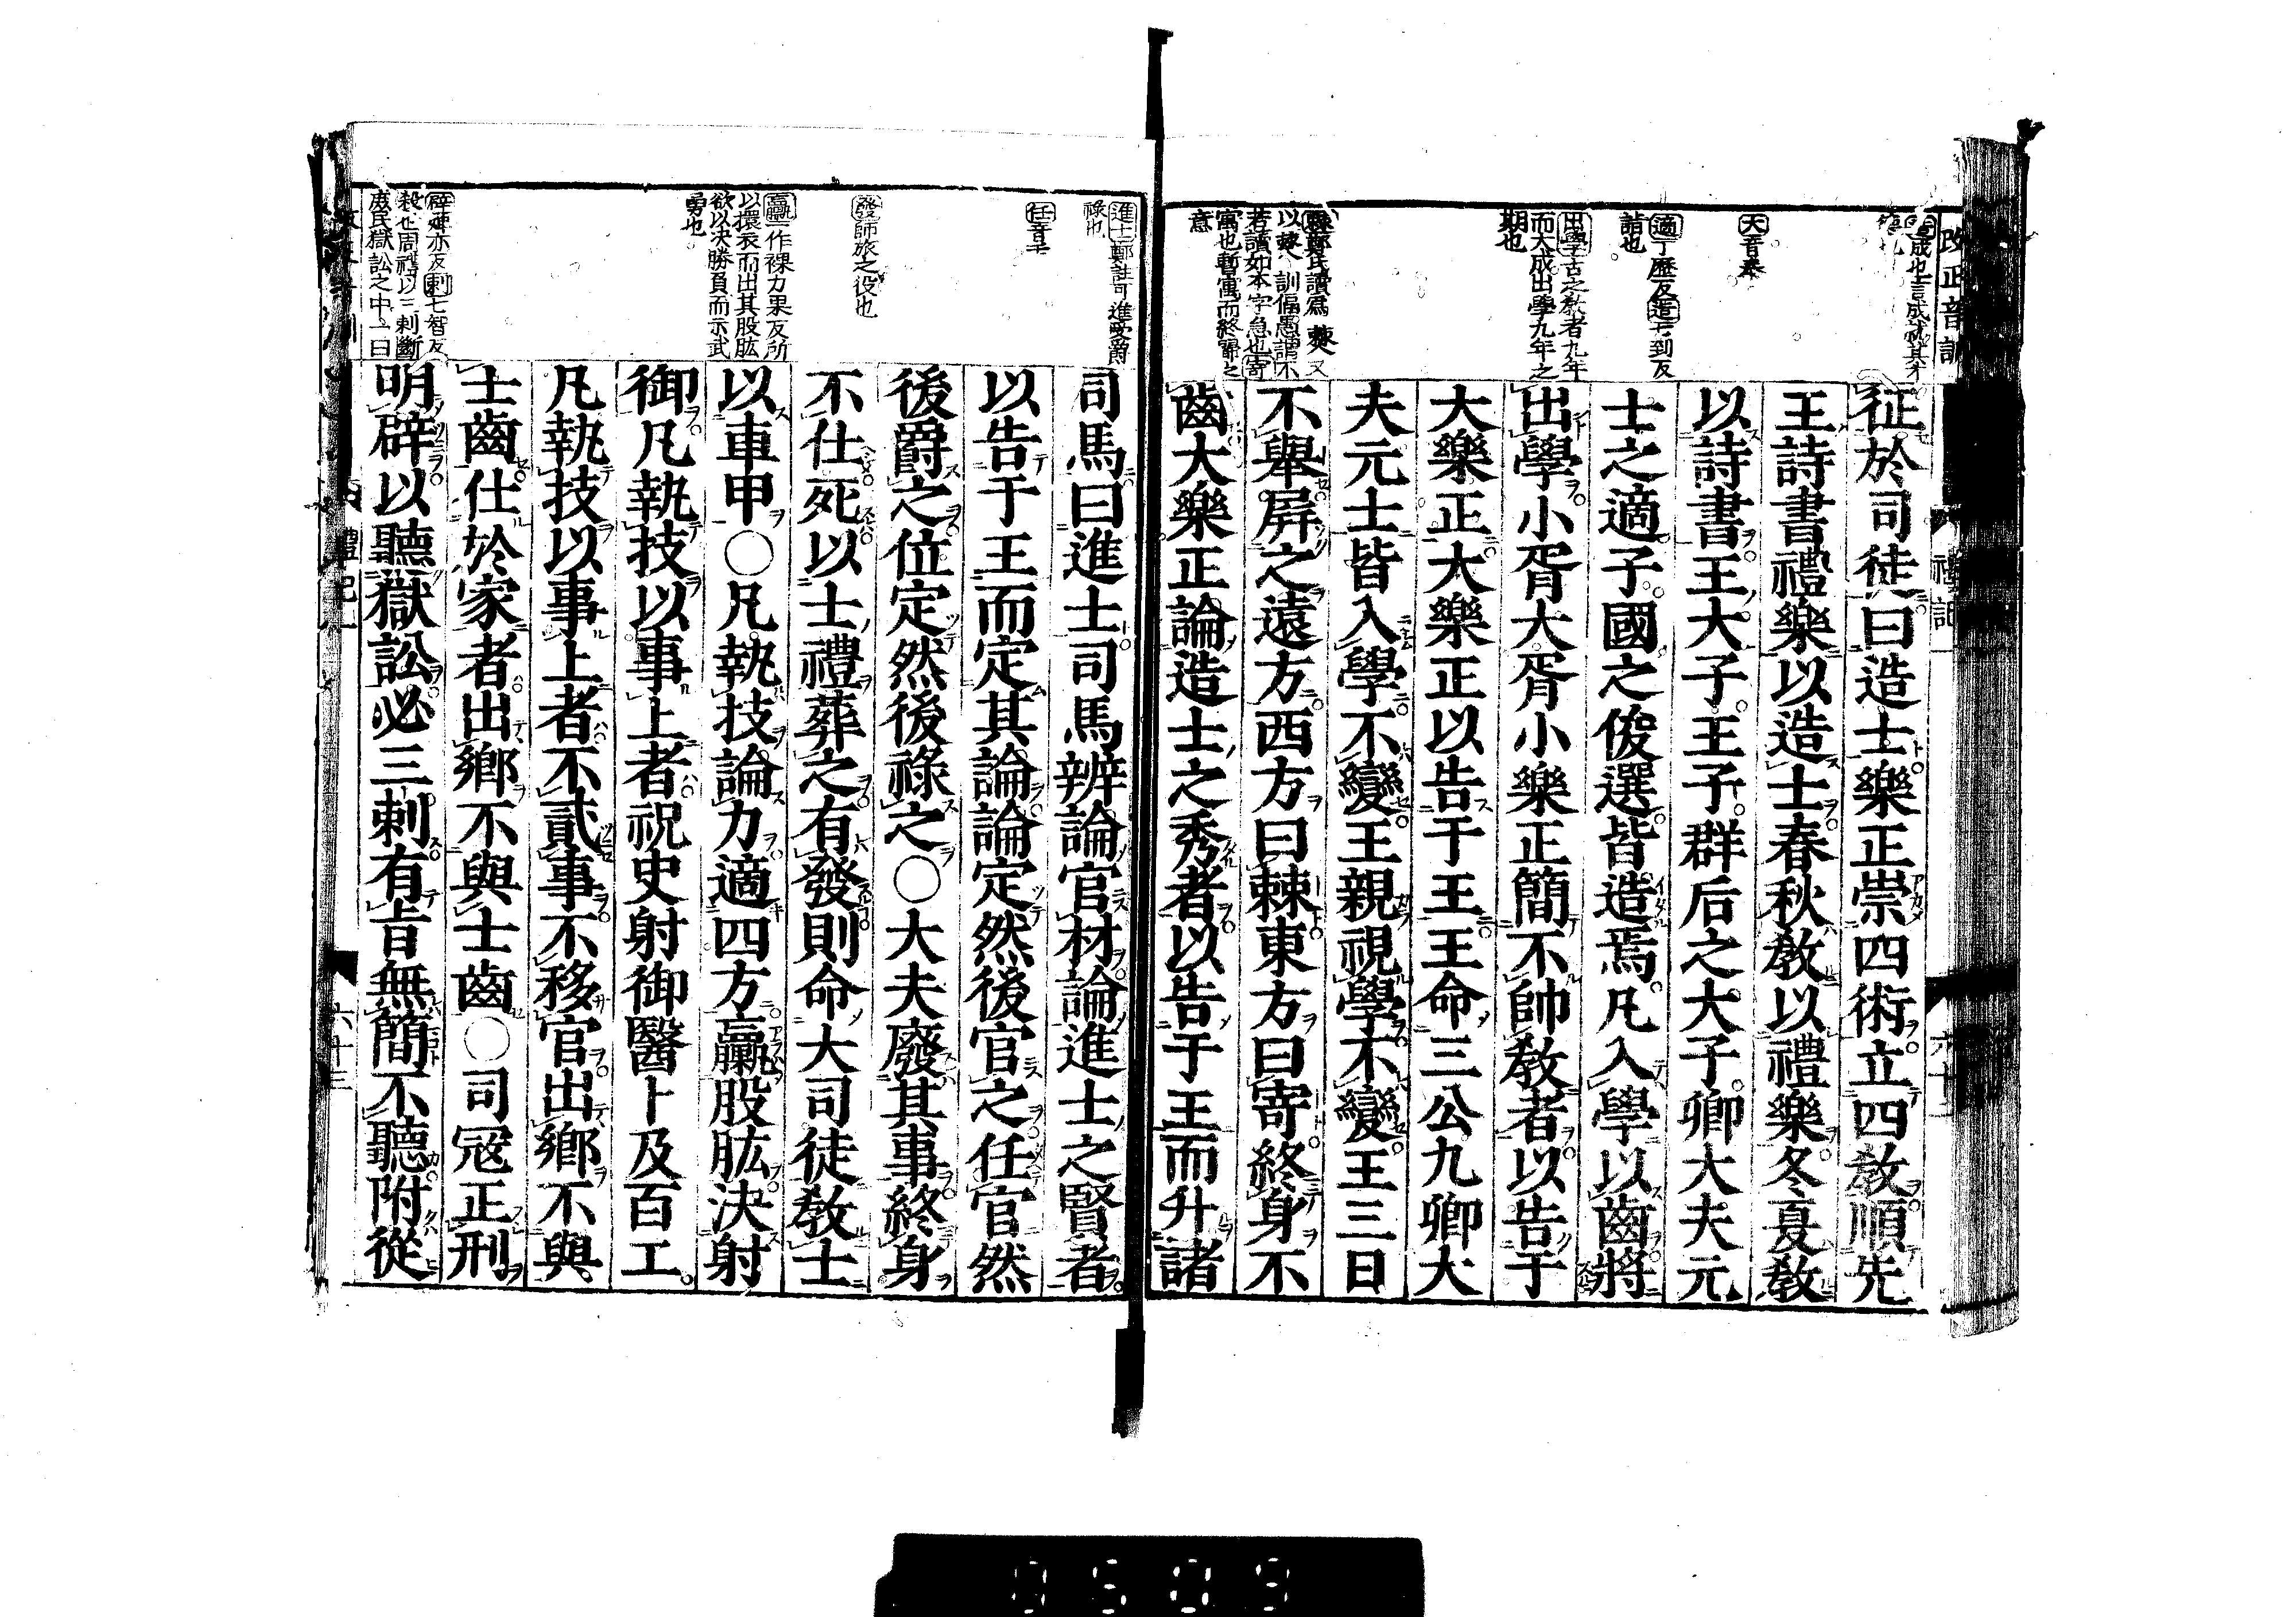 改正音訓
禮記
六十二
成也言成就其才
大音泰
適丁歴反造七到反
詣也
出學古之教者九年
而大成出學九年之
期也
棘鄭氏讀爲僰又
以棘訓偪愚謂不
若讀如本字急也寄
寓也暫寓而終歸之
意
征於司徒曰造士樂正崇四術立四教順先
王詩書禮樂以造士春秋教以禮樂冬夏教
以詩書王大子王子群后之大子卿大夫元
士之適子國之俊選皆造焉凡入學以齒將
出學小胥大胥小樂正簡不帥教者以告于
大樂正大樂正以告于王王命三公九卿大
夫元士皆入學不變王親視學不變王三日
不舉屏之遠方西方曰棘東方曰寄終身不
齒大樂正論造士之秀者以告于王而升諸
進士鄭註可進受爵
祿也
任音壬
發師旅之役也
臝一作裸力果反所
以擐衣而出其股肱
欲以決勝負而示武
勇也
辟婢亦反刺七智反
殺也周禮以三刺斷
庶民獄訟之中一曰
司馬曰進士司馬辨論官材論進士之賢者
以告于王而定其論論定然後官之任官然
後爵之位定然後祿之〇大夫廢其事終身
不仕死以士禮葬之有發則命大司徒教士
以車甲〇凡執技論力適四方臝股肱決射
御凡執技以事上者祝史射御醫卜及百工
凡執技以事上者不貳事不移官出鄉不與
士齒仕於家者出鄉不與士齒〇司寇正刑
明辟以聽獄訟必三刺有旨無簡不聽附從
禮記
六十三
0509